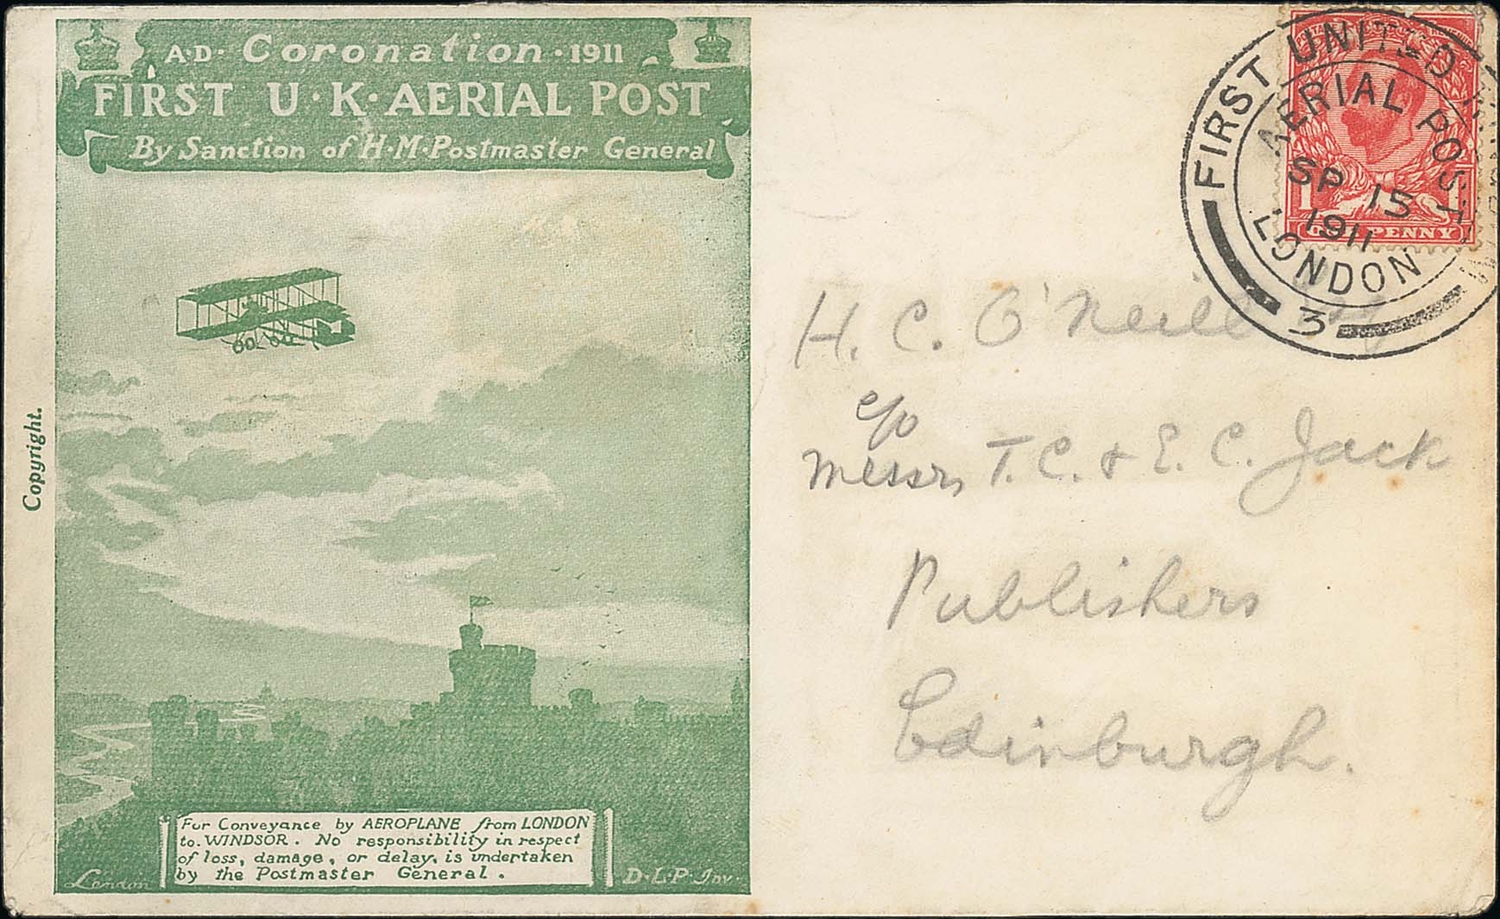 A·D· Coronation · 1911
FIRST U·K·AERIAL POST
By Sanction of H·M·Postmaster General
Copyright.
For Conveyance by AEROPLANE from LONDON
to WINDSOR. No responsibility in respect
of loss, damage, or delay, is undertaken
by the Postmaster General.
London
D·L·P· Inv.
FIRST UNITED
AERIAL POST
SP 15
1911
LONDON
3
1 PENNY
H. C. O'Neill
c/o
Messrs T. C. & E. C. Jack
Publishers
Edinburgh.